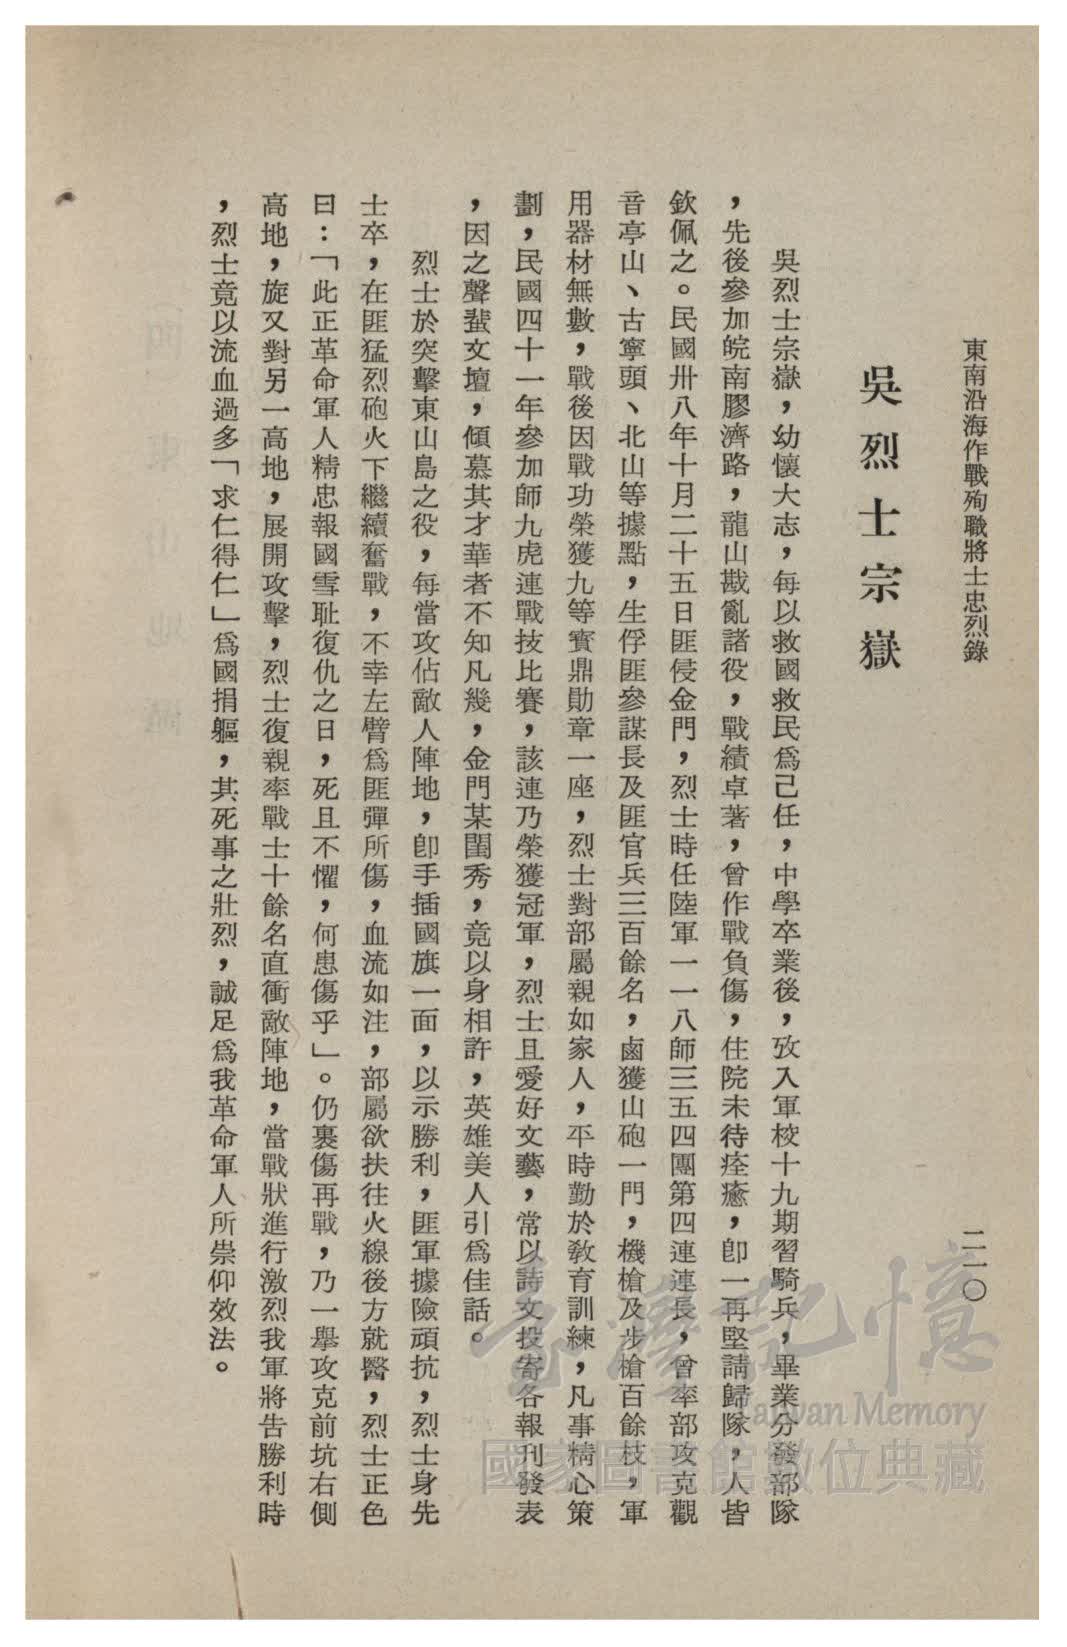 東南沿海作戰殉職將士忠烈錄
二一〇
吳烈士宗嶽
吳烈士宗嶽，幼懷大志，每以救國救民爲己任，中學卒業後，攷入軍校十九期習騎兵，畢業分發部隊
，先後參加皖南膠濟路，龍山戡亂諸役，戰績卓著，曾作戰負傷，住院未待痊癒，卽一再堅請歸隊，人皆
欽佩之。民國卅八年十月二十五日匪侵金門，烈士時任陸軍一一八師三五四團第四連連長，曾率部攻克觀
音亭山、古寧頭、北山等據點，生俘匪參謀長及匪官兵三百餘名，鹵獲山砲一門，機槍及步槍百餘枝，軍
用器材無數，戰後因戰功榮獲九等寳鼎勛章一座，烈士對部屬親如家人，平時勤於敎育訓練，凡事精心策
劃，民國四十一年參加師九虎連戰技比賽，該連乃榮獲冠軍，烈士且愛好文藝，常以詩文投寄各報刊發表
，因之聲蜚文壇，傾慕其才華者不知凡幾，金門某閨秀，竟以身相許，英雄美人引爲佳話。
烈士於突擊東山島之役，每當攻佔敵人陣地，卽手插國旗一面，以示勝利，匪軍據險頑抗，烈士身先
士卒，在匪猛烈砲火下繼續奮戰，不幸左臂爲匪彈所傷，血流如注，部屬欲扶往火線後方就醫，烈士正色
曰：「此正革命軍人精忠報國雪耻復仇之日，死且不懼，何患傷乎」。仍裹傷再戰，乃一舉攻克前坑右側
高地，旋又對另一高地，展開攻擊，烈士復親率戰士十餘名直衝敵陣地，當戰狀進行激烈我軍將告勝利時
，烈士竟以流血過多「求仁得仁」爲國捐軀，其死事之壯烈，誠足爲我革命軍人所崇仰效法。
臺灣記憶
Taiwan Memory
國家圖書館數位典藏